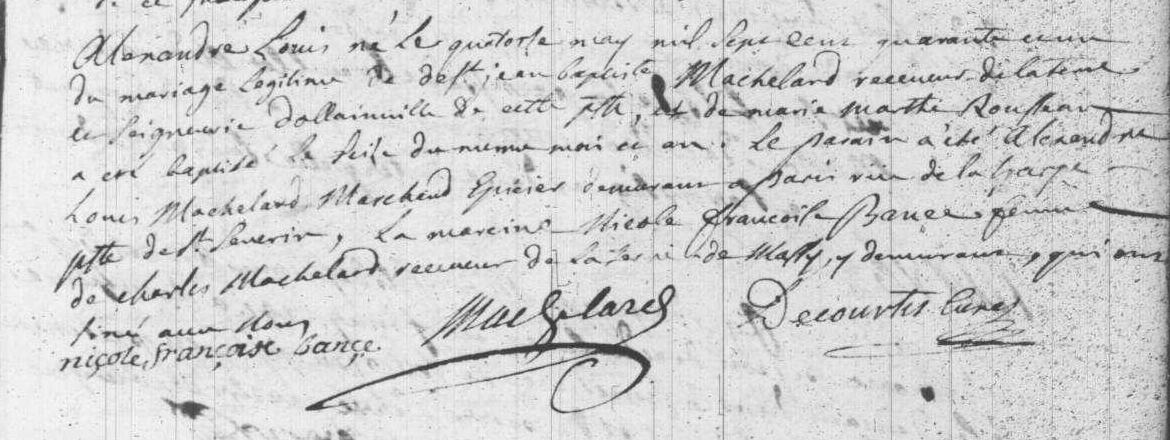 Alexandre Louis né Le quatorse may mil sept cent quarante et un
du mariage legitime de deft. jean baptiste Machelard receveur de la terre
et Seigneurie dallainville de cette psse, et de marie marthe Rousseau
a eté baptisé le seise du meme mois et an. Le parain a été Alexandre
Louis Machelard Marchand Epicier demeurant a Paris rue de la harpe
psse de St. Severin, La mareine Nicole francoise Banee femme
de charles Machelard receveur de la terre de Massy, y demeurant, qui ont
siné avec Nous
nicole françoise bançe Machelard Decourtis Curé